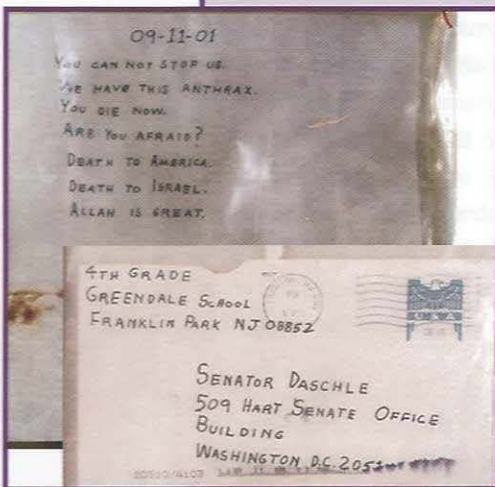 09-11-01
YOU CAN NOT STOP US.
WE HAVE THIS ANTHRAX.
YOU DIE NOW.
ARE YOU AFRAID?
DEATH TO AMERICA.
DEATH TO ISRAEL.
ALLAH IS GREAT.
4TH GRADE
GREENDALE SCHOOL
FRANKLIN PARK NJ 08852
USA
SENATOR DASCHLE
509 HART SENATE OFFICE
BUILDING
WASHINGTON D.C. 205
20510/4103